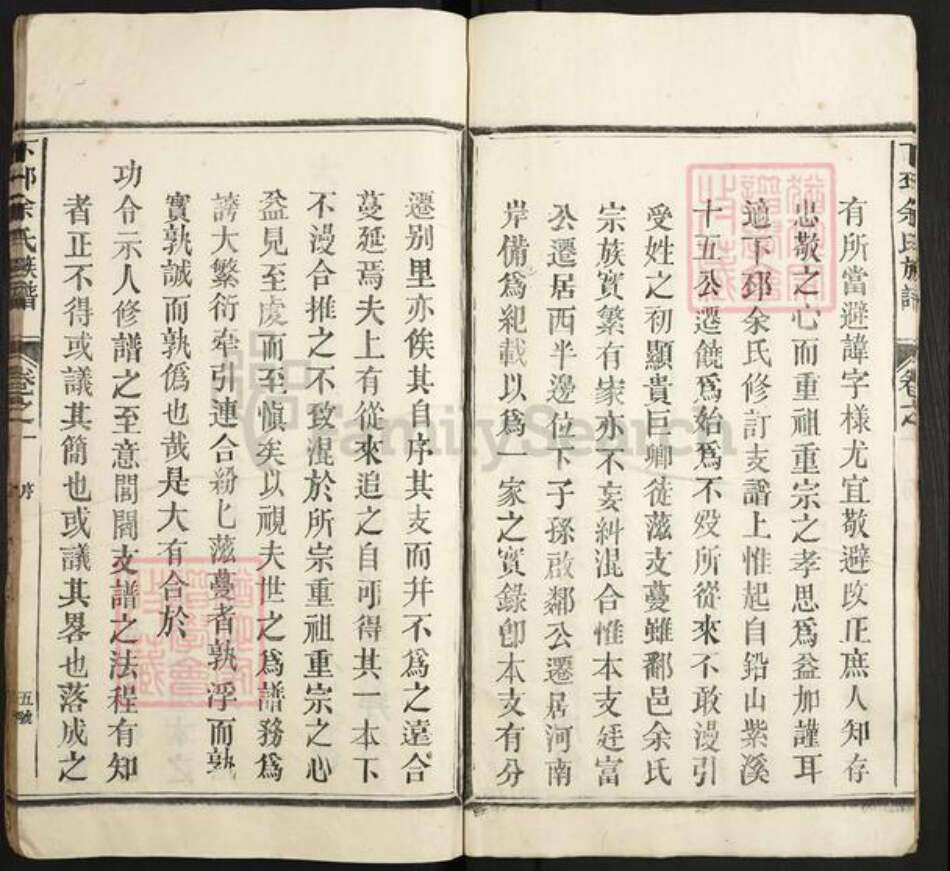 有所當避諱字樣尤宜敬避改正庶人知存
忠敬之心而重祖重宗之孝思爲益加謹耳
適下邳余氏修訂支譜上惟起自鉛山紫溪
十五公遷饒爲始爲不歿所從來不敢漫引
受姓之初顯貴巨卿徙蔓支蔓雖鄱邑余氏
宗族實繁有家亦不妄糾混合惟本支廷富
公遷居西半邊位下子孫啟鄰公遷居河南
岸備爲紀載以爲一家之實錄卽本支有分
遷别里亦俟其自序其支而并不爲之遠合
蔓延焉夫上有從來追之自可得其一本下
不漫合推之不致混於所宗重祖重宗之心
益見至虔而至愼矣以視夫世之爲譜務爲
誇大繁衍牽引連合紛匕滋蔓者孰浮而孰
實孰誠而孰僞也哉是大有合於
功令示人修譜之至意閭閻支譜之法程有知
者正不得或議其簡也或議其畧也落成之
下邳余氏族譜
卷之一
序
五號
下邳余氏族譜
卷之
FamilySearch